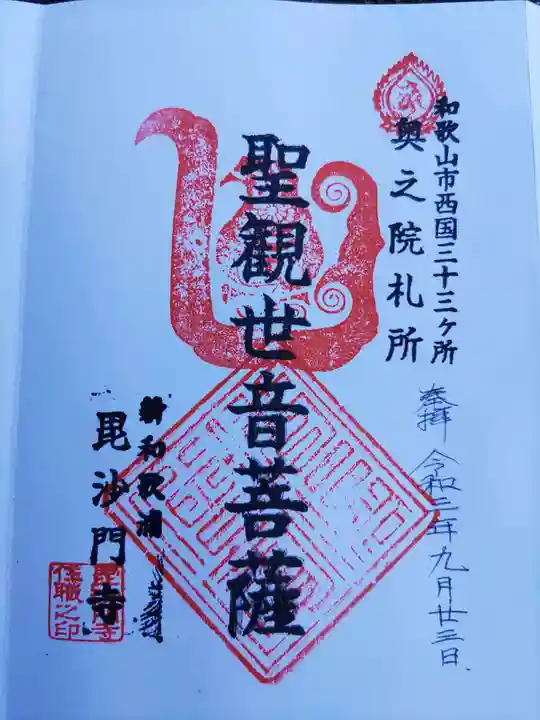 和歌山市西国三十三ヶ所
奥之院札所
奉拝 令和二年九月廿三日
聖観世音菩薩
新和歌浦
毘沙門寺
毘沙門寺
住職之印